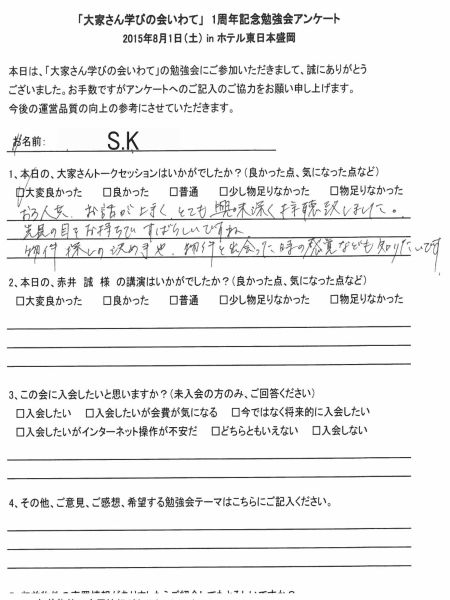 「大家さん学びの会いわて」 1周年記念勉強会アンケート
2015年8月1日(土) in ホテル東日本盛岡
本日は、「大家さん学びの会いわて」の勉強会にご参加いただきまして、誠にありがとう
ございました。お手数ですがアンケートへのご記入のご協力をお願い申し上げます。
今後の運営品質の向上の参考にさせていただきます。
お名前: S.K
1、本日の、大家さんトークセッションはいかがでしたか?(良かった点、気になった点など)
□大変良かった □良かった □普通 □少し物足りなかった □物足りなかった
お話が上手く、とても興味深く拝聴致しました。
の目をお持ちですばらしいですね
物件探しの決め手や、物件と出会った時の感覚なども知りたいです
2、本日の、赤井 誠 様 の講演はいかがでしたか?(良かった点、気になった点など)
□大変良かった □良かった □普通 □少し物足りなかった □物足りなかった
3、この会に入会したいと思いますか?(未入会の方のみ、ご回答ください)
□入会したい □入会したいが会費が気になる □今ではなく将来的に入会したい
□入会したいがインターネット操作が不安だ □どちらともいえない □入会しない
4、その他、ご意見、ご感想、希望する勉強会テーマはこちらにご記入ください。